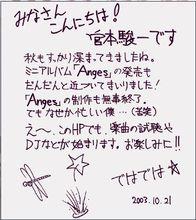 みなさん
こんにちは!
宮本駿一です
秋もすっかり深まってきましたね。
ミニアルバム「Anges」の発売も
だんだんと近づいてまいりました!
「Anges」の制作も無事終了。
でもなぜか忙しい僕…(苦笑)
え〜、このHPでも、楽曲の試聴や
DJなどが始まります。お楽しみに!!
ではでは☆
2003.10.21